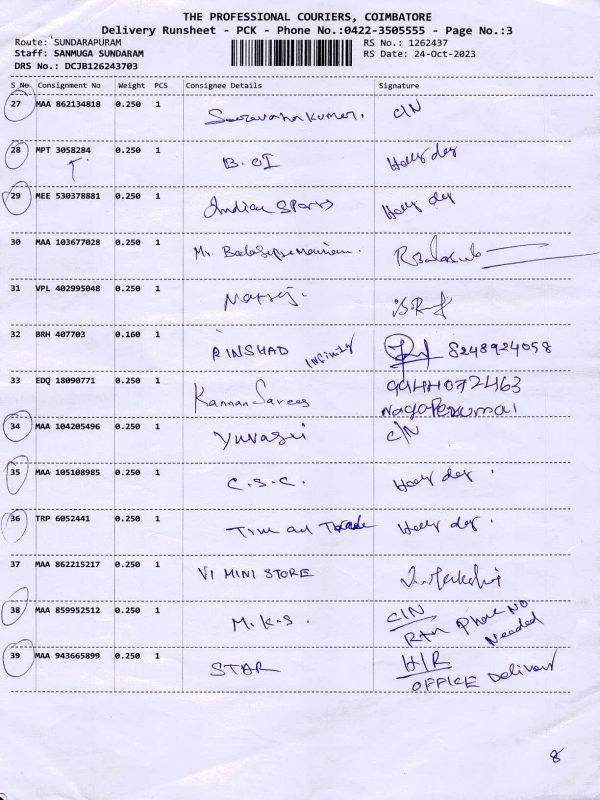 THE PROFESSIONAL COURIERS, COIMBATORE
Delivery Runsheet - PCK - Phone No.:0422-3505555 - Page No.:3
Route: SUNDARAPURAM RS No.: 1262437
Staff: SANMUGA SUNDARAM RS Date: 24-Oct-2023
DRS No.: DCJB126243703
S No Consignment No Weight PCS Consignee Details Signature
27 MAA 862134818 0.250 1 Saravanakumar. C/N
28 MPT 3058284 0.250 1 B.OI Holy day
29 MEE 530378881 0.250 1 Indian Sports Holy day
30 MAA 103677028 0.250 1 Mr. Balasubramaniam.
31 VPL 402995048 0.250 1
32 BRH 407703 0.160 1 RINSHAD Infinity 8248924058
33 EDQ 18090771 0.250 1 Kannan Sarees 9944072463
Nagaperumal
34 MAA 104205496 0.250 1 Yuvasri C/N
35 MAA 105108985 0.250 1 C.S.C. Holy day.
36 TRP 6052441 0.250 1 Holy day.
37 MAA 862215217 0.250 1 VI MINI STORE
38 MAA 859952512 0.250 1 M.K.S. C/N
Rtn Phone No
Needed
39 MAA 943665899 0.250 1 STAR H/R
OFFICE Delivery
8